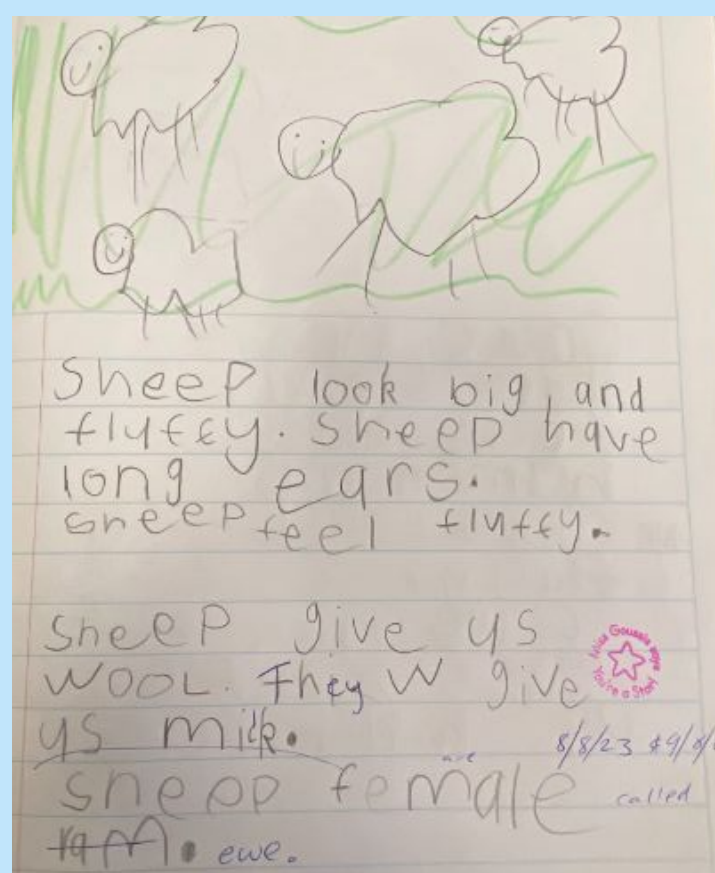 Sheep look big, and
fluffy. Sheep have
long ears.
sheep feel fluffy.
Sheep give us
WOOL. They W give
us milk.
Miss Goussis says
You're a Star!
8/8/23 & 9/8/
are
sheep female called
ram. ewe.